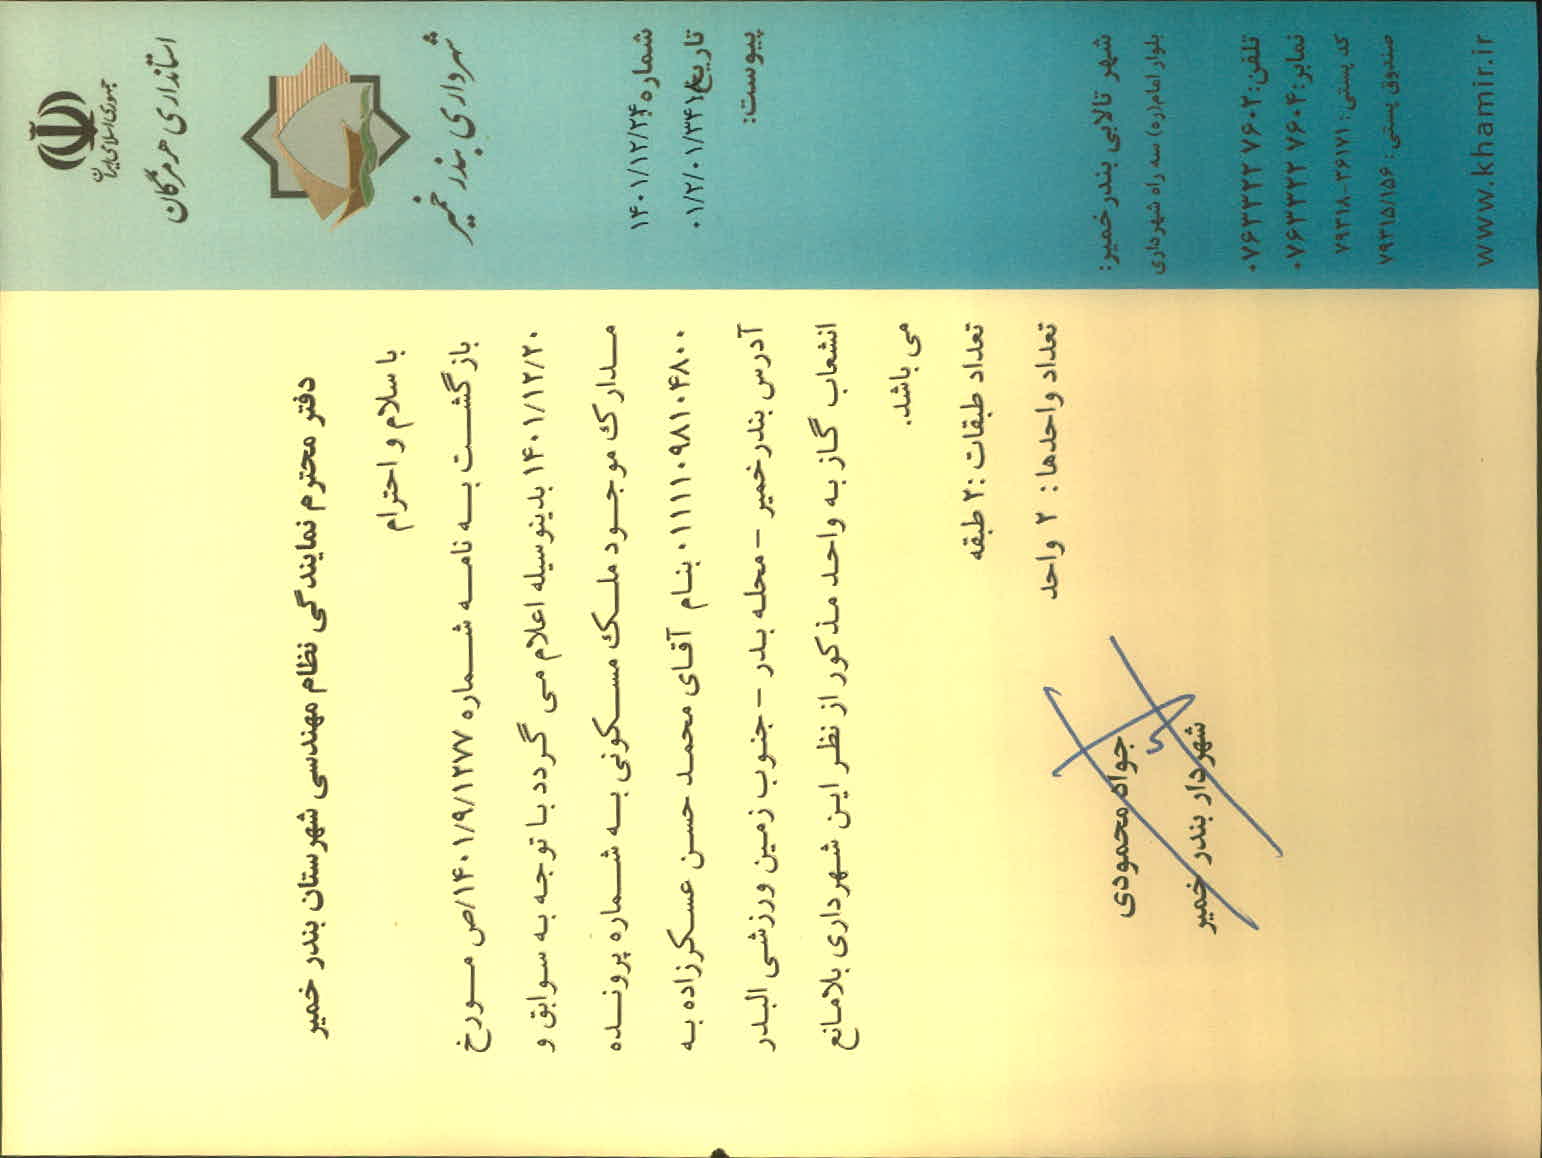 جمهوری اسلامی ایران
استانداری هرمزگان
شهرداری بندر خمیر
شماره:
۱۴۰۱/۱۲/۲۴
تاریخ:
پیوست:
دفتر محترم نمایندگی نظام مهندسی شهرستان بندر خمیر
با سلام و احترام
بازگشت به نامه شماره ۱۴۰۱/۹/۱۲۷۷/ص مورخ
۱۴۰۱/۱۲/۲۰ بدینوسیله اعلام می گردد با توجه به سوابق و
مدارک موجود ملک مسکونی به شماره پرونده
۰۱۱۱۱۰۹۸۱۰۴۸۰۰ بنام آقای محمد حسن عسکرزاده به
آدرس بندرخمیر - محله بدر - جنوب زمین ورزشی البدر
انشعاب گاز به واحد مذکور از نظر این شهرداری بلامانع
می باشد.
تعداد طبقات :۲ طبقه
تعداد واحدها : ۲ واحد
جواد محمودی
شهردار بندر خمیر
شهر تالابی بندر خمیر:
بلوار امام(ره) سه راه شهرداری
تلفن: ۰۷۶۳۳۲۲ ۷۶۰۲
نمابر: ۰۷۶۳۳۲۲ ۷۶۰۴
کد پستی: ۷۹۳۱۸-۳۶۱۷۱
صندوق پستی: ۷۹۳۱۵/۱۵۶
www.khamir.ir